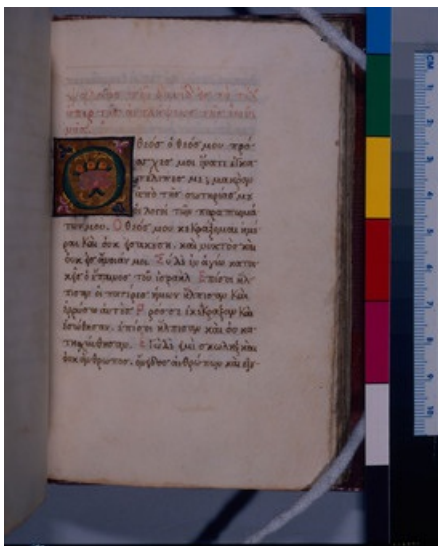 ὑπὲρ τῆς ἀντιλήψεως τῆς ἑωθι
νῆς
Ὁ θεός ὁ θεός μου πρό
σχες μοι ἵνατι ἐγκα
τέλιπές με; μακρὰν
ἀπὸ τῆς σωτηρίας μου
οἱ λόγοι τῶν παραπτωμά
των μου. Ὁ θεός μου κεκράξομαι ἡμέ
ρας καὶ οὐκ εἰσακούση, καὶ νυκτὸς καὶ
οὐκ εἰς ἄνοιαν ἐμοί. Σὺ δὲ ἐν ἁγίω κατοι
κεῖς ὁ ἔπαινος τοῦ ἰσραήλ. Ἐπὶ σοὶ ἤλ
πισαν οἱ πατέρες ἡμῶν ἤλπισαν καὶ
ἐρρύσω αὐτούς. Πρὸς σὲ ἐκέκραξαν καὶ
ἐσώθησαν. ἐπὶ σοὶ ἤλπισαν καὶ οὐ κα
τησχύνθησαν. Ἐγὼ δέ εἰμι σκώληξ καὶ
οὐκ ἄνθρωπος. ὄνειδος ἀνθρώπων καὶ ἐξου